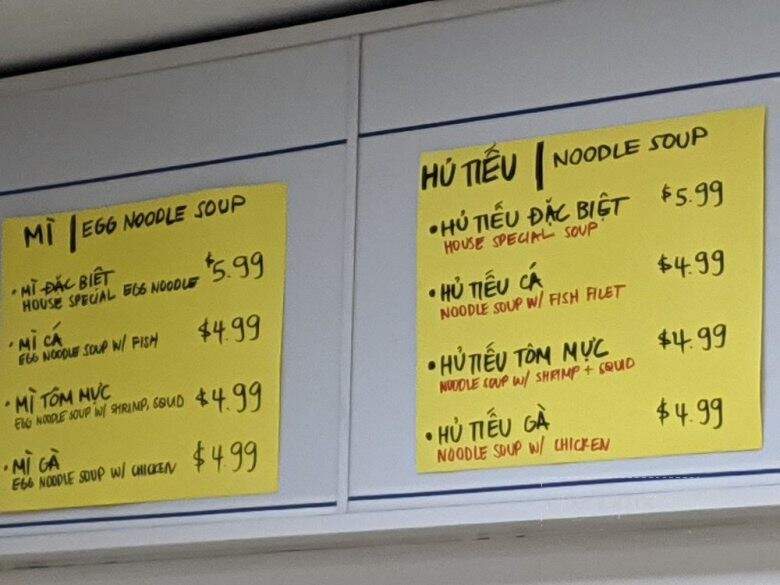 MÌ | EGG NOODLE SOUP
• MÌ ĐẶC BIỆT $5.99
HOUSE SPECIAL EGG NOODLE
• MÌ CÁ $4.99
EGG NOODLE SOUP W/ FISH
• MÌ TÔM MỰC $4.99
EGG NOODLE SOUP W/ SHRIMP, SQUID
• MÌ GÀ $4.99
EGG NOODLE SOUP W/ CHICKEN
HỦ TIẾU | NOODLE SOUP
• HỦ TIẾU ĐẶC BIỆT $5.99
HOUSE SPECIAL SOUP
• HỦ TIẾU CÁ $4.99
NOODLE SOUP W/ FISH FILET
• HỦ TIẾU TÔM MỰC $4.99
NOODLE SOUP W/ SHRIMP + SQUID
• HỦ TIẾU GÀ $4.99
NOODLE SOUP W/ CHICKEN